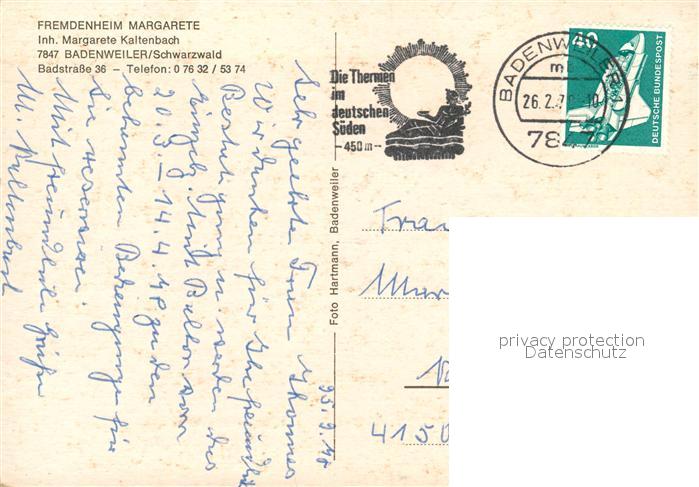 FREMDENHEIM MARGARETE
Inh. Margarete Kaltenbach
7847 BADENWEILER/Schwarzwald
Badstraße 36 – Telefon: 0 76 32 / 53 74
Die Thermen
im
deutschen
Süden
– 450 m –
BADENWEILER 1
26.2.7
-10
7847
40
DEUTSCHE BUNDESPOST
Foto Hartmann, Badenweiler
Sehr geehrte Frau
Wir danken für Ihre freundliche
Bestätigung u. werden das
Einzel. Mit Balkon vom
20.3. – 14.4. zu den
bekannten Bedingungen für
Sie reservieren.
Mit freundlichen Grüßen
M. Kaltenbach
Frau
415
privacy protection
Datenschutz